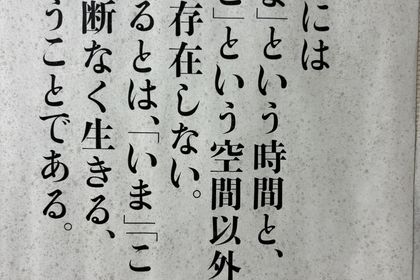 には
」という時間と、
」という空間以外
存在しない。
るとは、「いま」「こ
断なく生きる、
うことである。